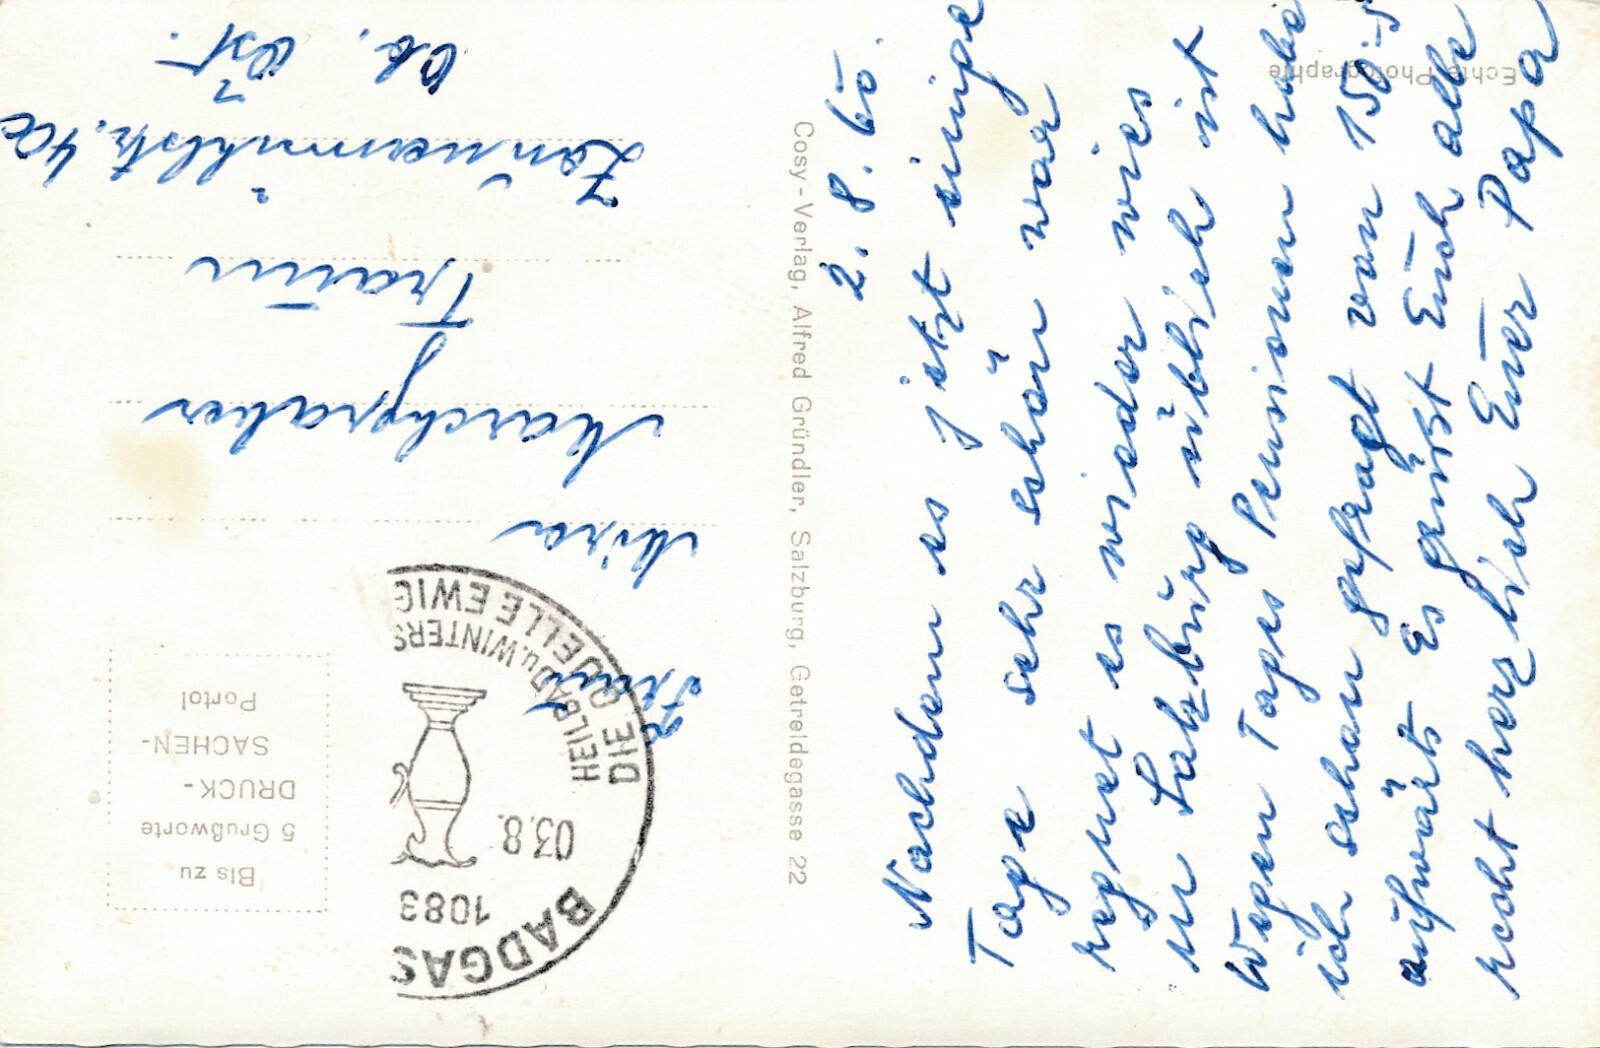 2. 8. 65.
Nachdem es jetzt einige
Tage sehr schön war
regnet es wieder wies
in Salzburg üblich ist
Wegen Tages Pensionen habe
ich schon gefragt von 150.-S
aufwärts Es grüßt Euch alle
recht herzlich Euer Papa
Echte Photographie
Cosy-Verlag, Alfred Gründler, Salzburg, Getreidegasse 22
Bis zu
5 Grußworte
DRUCK-
SACHEN-
Porto!
BADGAS
1083
03.8.
DIE QUELLE EWIG
HEILBAD u. WINTERS
Frau
Mira
Marchgraber
Traun
Zannermühlstr. 40
Ob. Öst.